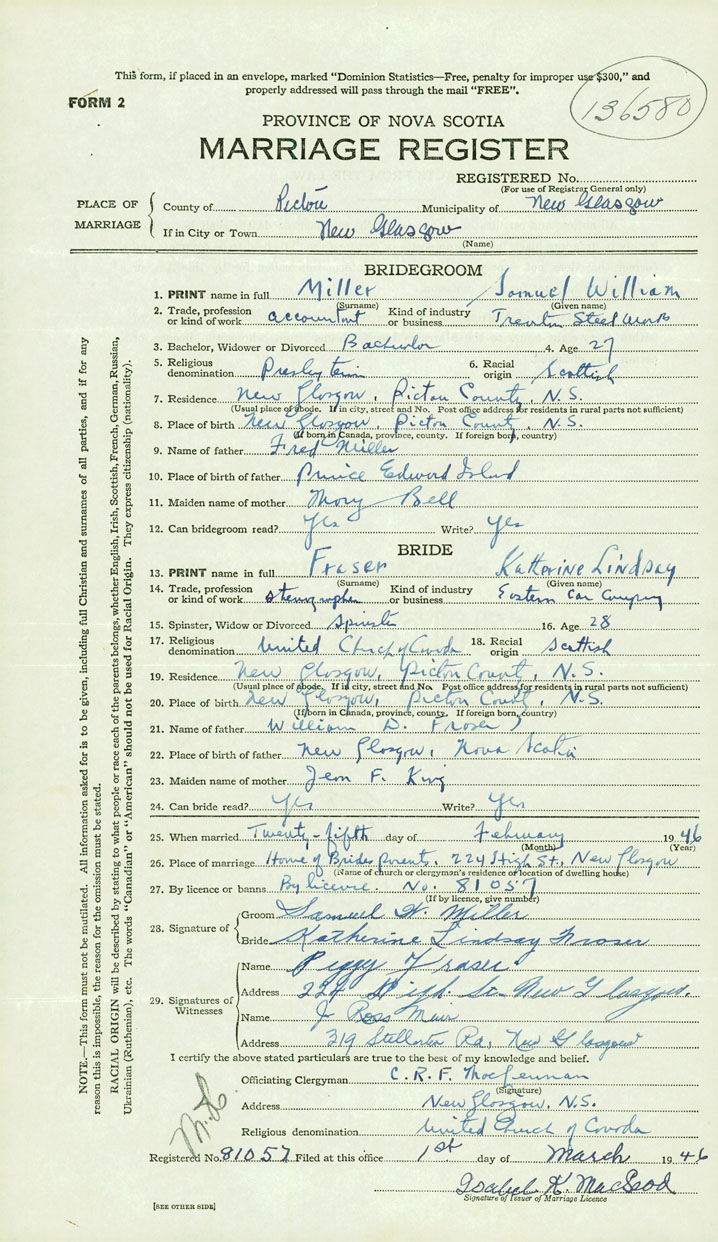 This form, if placed in an envelope, marked "Dominion Statistics—Free, penalty for improper use $300," and
properly addressed will pass through the mail "FREE".
FORM 2
136580
PROVINCE OF NOVA SCOTIA
MARRIAGE REGISTER
REGISTERED No.
(For use of Registrar General only)
PLACE OF MARRIAGE
County of Pictou Municipality of New Glasgow
If in City or Town New Glasgow
(Name)
BRIDEGROOM
1. PRINT name in full Miller Samuel William
(Surname) (Given name)
2. Trade, profession or kind of work accountant Kind of industry or business Trenton Steel Works
3. Bachelor, Widower or Divorced Bachelor 4. Age 27
5. Religious denomination Presbyterian 6. Racial origin Scottish
7. Residence New Glasgow, Pictou County, N.S.
(Usual place of abode. If in city, street and No. Post office address for residents in rural parts not sufficient)
8. Place of birth New Glasgow, Pictou County, N.S.
(If born in Canada, province, county. If foreign born, country)
9. Name of father Fred Miller
10. Place of birth of father Prince Edward Island
11. Maiden name of mother Mary Bell
12. Can bridegroom read? Yes Write? Yes
BRIDE
13. PRINT name in full Fraser Katherine Lindsay
(Surname) (Given name)
14. Trade, profession or kind of work stenographer Kind of industry or business Eastern Car Company
15. Spinster, Widow or Divorced Spinster 16. Age 28
17. Religious denomination United Church of Canada 18. Racial origin Scottish
19. Residence New Glasgow, Pictou County, N.S.
(Usual place of abode. If in city, street and No. Post office address for residents in rural parts not sufficient)
20. Place of birth New Glasgow, Pictou County, N.S.
(If born in Canada, province, county. If foreign born, country)
21. Name of father William D. Fraser
22. Place of birth of father New Glasgow, Nova Scotia
23. Maiden name of mother Jean F. King
24. Can bride read? Yes Write? Yes
25. When married Twenty-fifth day of February 1946
(Month) (Year)
26. Place of marriage Home of Brides Parents, 224 High St., New Glasgow
(Name of church or clergyman's residence or location of dwelling house)
27. By licence or banns By licence. No. 81057
(If by licence, give number)
28. Signature of
Groom Samuel W. Miller
Bride Katherine Lindsay Fraser
29. Signatures of Witnesses
Name Peggy Fraser.
Address 224 High St. New Glasgow.
Name J Ross Muir
Address 319 Stellarton Rd, New Glasgow
I certify the above stated particulars are true to the best of my knowledge and belief.
Officiating Clergyman C. R. F. MacLennan
(Signature)
Address New Glasgow, N.S.
Religious denomination United Church of Canada
Registered No. 81057 Filed at this office 1st day of March 1946
Isabel K. MacLeod
Signature of Issuer of Marriage Licence
[SEE OTHER SIDE]
NOTE.—This form must not be mutilated. All information asked for is to be given, including full Christian and surnames of all parties, and if for any
reason this is impossible, the reason for the omission must be stated.
RACIAL ORIGIN will be described by stating to what people or race each of the parents belongs, whether English, Irish, Scottish, French, German, Russian,
Ukrainian (Ruthenian), etc. The words "Canadian" or "American" should not be used for Racial Origin. They express citizenship (nationality).